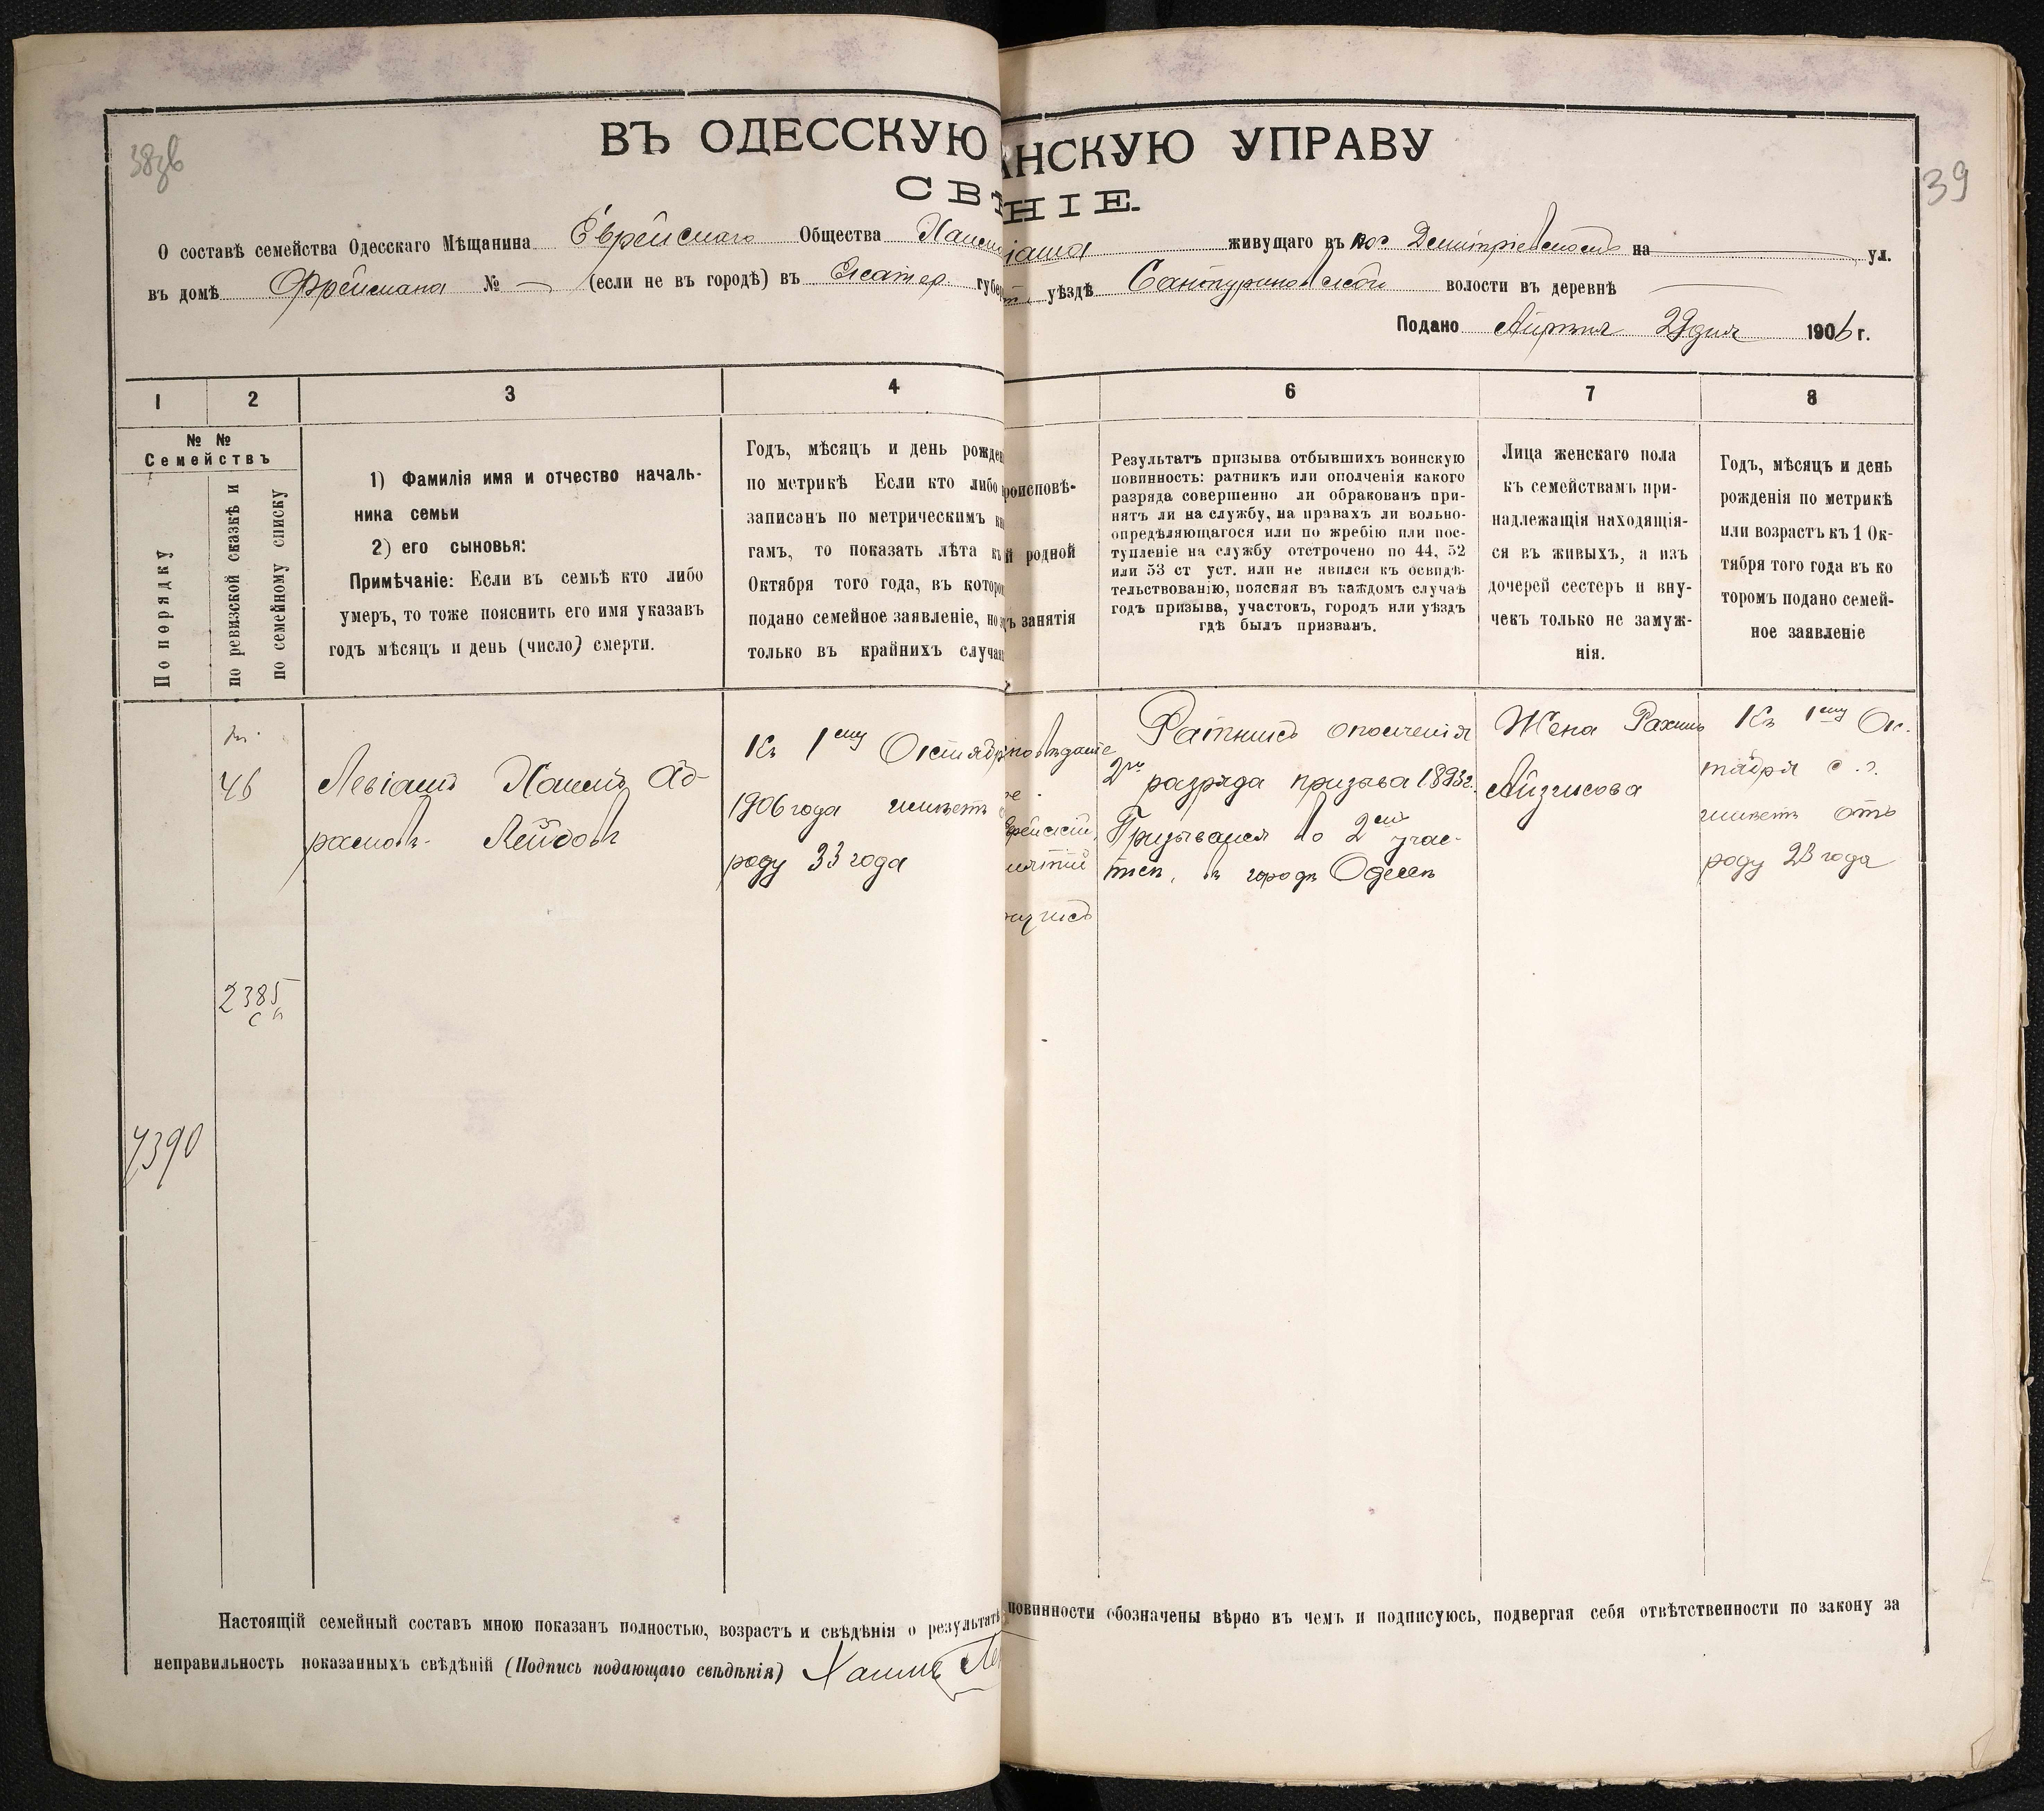 ВЪ ОДЕССКУЮ АНСКУЮ УПРАВУ
СВѢ НІЕ.
38об
39
О составѣ семейства Одесскаго Мѣщанина Еврейскаго Общества Хаима іаша живущаго въ пос Дмитріевскомъ на ул.
въ домѣ Фреймана № — (если не въ городѣ) въ Екатер. губер уѣздѣ волости въ деревнѣ —
Подано Апрѣля 29 дня 1906 г.
1 2 3 4 6 7 8
№ №
Семействъ
По порядку
по ревизской сказкѣ и
по семейному списку
1) Фамилія имя и отчество началь-
ника семьи
2) его сыновья:
Примѣчаніе: Если въ семьѣ кто либо
умеръ, то тоже пояснить его имя указавъ
годъ мѣсяцъ и день (число) смерти.
Годъ, мѣсяцъ и день рожде
по метрикѣ Если кто либо
записанъ по метрическимъ кн
гамъ, то показать лѣта къ
Октября того года, въ которо
подано семейное заявленіе, но
только въ крайнихъ случа
роисповѣ-
й родной
ъ занятія
Результатъ призыва отбывшихъ воинскую
повинность: ратникъ или ополченія какого
разряда совершенно ли обракованъ при-
нятъ ли на службу, на правахъ ли вольно-
опредѣляющагося или по жребію или пос-
тупленіе на службу отстрочено по 44, 52
или 53 ст уст. или не явился къ освидѣ-
тельствованію, поясняя въ каждомъ случаѣ
годъ призыва, участокъ, городъ или уѣздъ
гдѣ былъ призванъ.
Лица женскаго пола
къ семействамъ при-
надлежащія находящія-
ся въ живыхъ, а изъ
дочерей сестеръ и вну-
чекъ только не замуж-
нія.
Годъ, мѣсяцъ и день
рожденія по метрикѣ
или возрастъ къ 1 Ок-
тября того года въ ко
торомъ подано семей-
ное заявленіе
46
Левіашъ Хаимъ Аб-
рамовъ- Лейбовъ
Къ 1ему Октябр
1906 года имѣетъ
роду 33 года
Ратникъ ополченія
2го разряда призыва 1893г.
Призывался во 2ом учас-
ткѣ, въ городѣ Одессѣ
Жена Рахиль
Айзикова
Къ 1ему Ок-
тября с.г.
имѣетъ отъ
роду 23 года
2385
7390
Настоящій семейный составъ мною показанъ полностью, возрастъ и свѣдѣнія о результатѣ повинности обозначены вѣрно въ чемъ и подписуюсь, подвергая себя отвѣтственности по закону за
неправильность показанныхъ свѣдѣній (Подпись подающаго свѣдѣнія) Хаимъ Ле